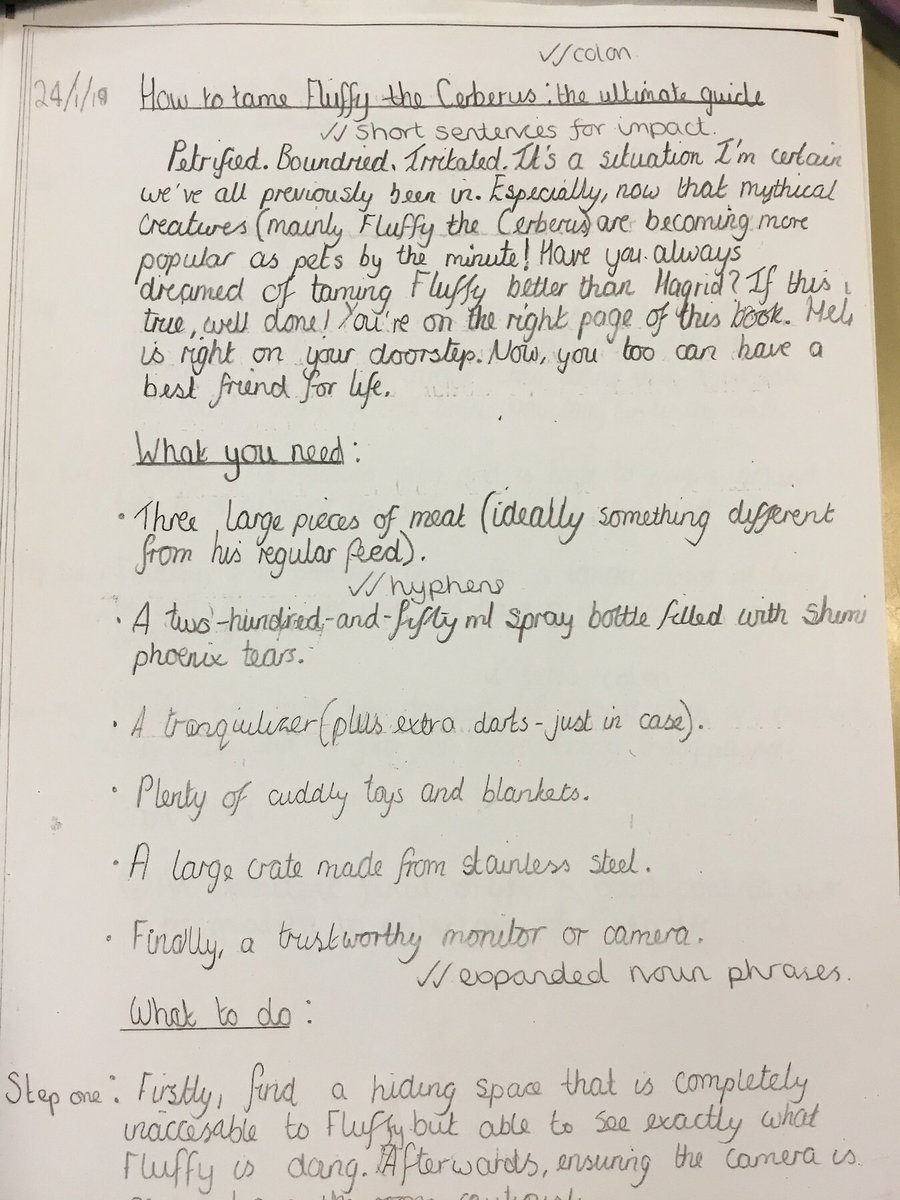 √√ colon
24/1/19 How to tame Fluffy the Cerberus: the ultimate guide
√√ short sentences for impact.
Petrified. Boundried. Irritated. It's a situation I'm certain
we've all previously been in. Especially, now that mythical
creatures (mainly Fluffy the Cerberus) are becoming more
popular as pets by the minute! Have you always
dreamed of taming Fluffy better than Hagrid? If this i
true, well done! You're on the right page of this book. Hel
is right on your doorstep. Now, you too can have a
best friend for life.
What you need:
• Three large pieces of meat (ideally something different
from his regular feed).
√√ hyphens
• A two-hundred-and-fifty ml spray bottle filled with shim
phoenix tears.
• A tranquilizer (plus extra darts - just in case).
• Plenty of cuddly toys and blankets.
• A large crate made from stainless steel.
• Finally, a trustworthy monitor or camera.
√√ expanded noun phrases.
What to do:
Step one: Firstly, find a hiding space that is completely
inaccesable to Fluffy but able to see exactly what
Fluffy is doing. Afterwards, ensuring the camera is